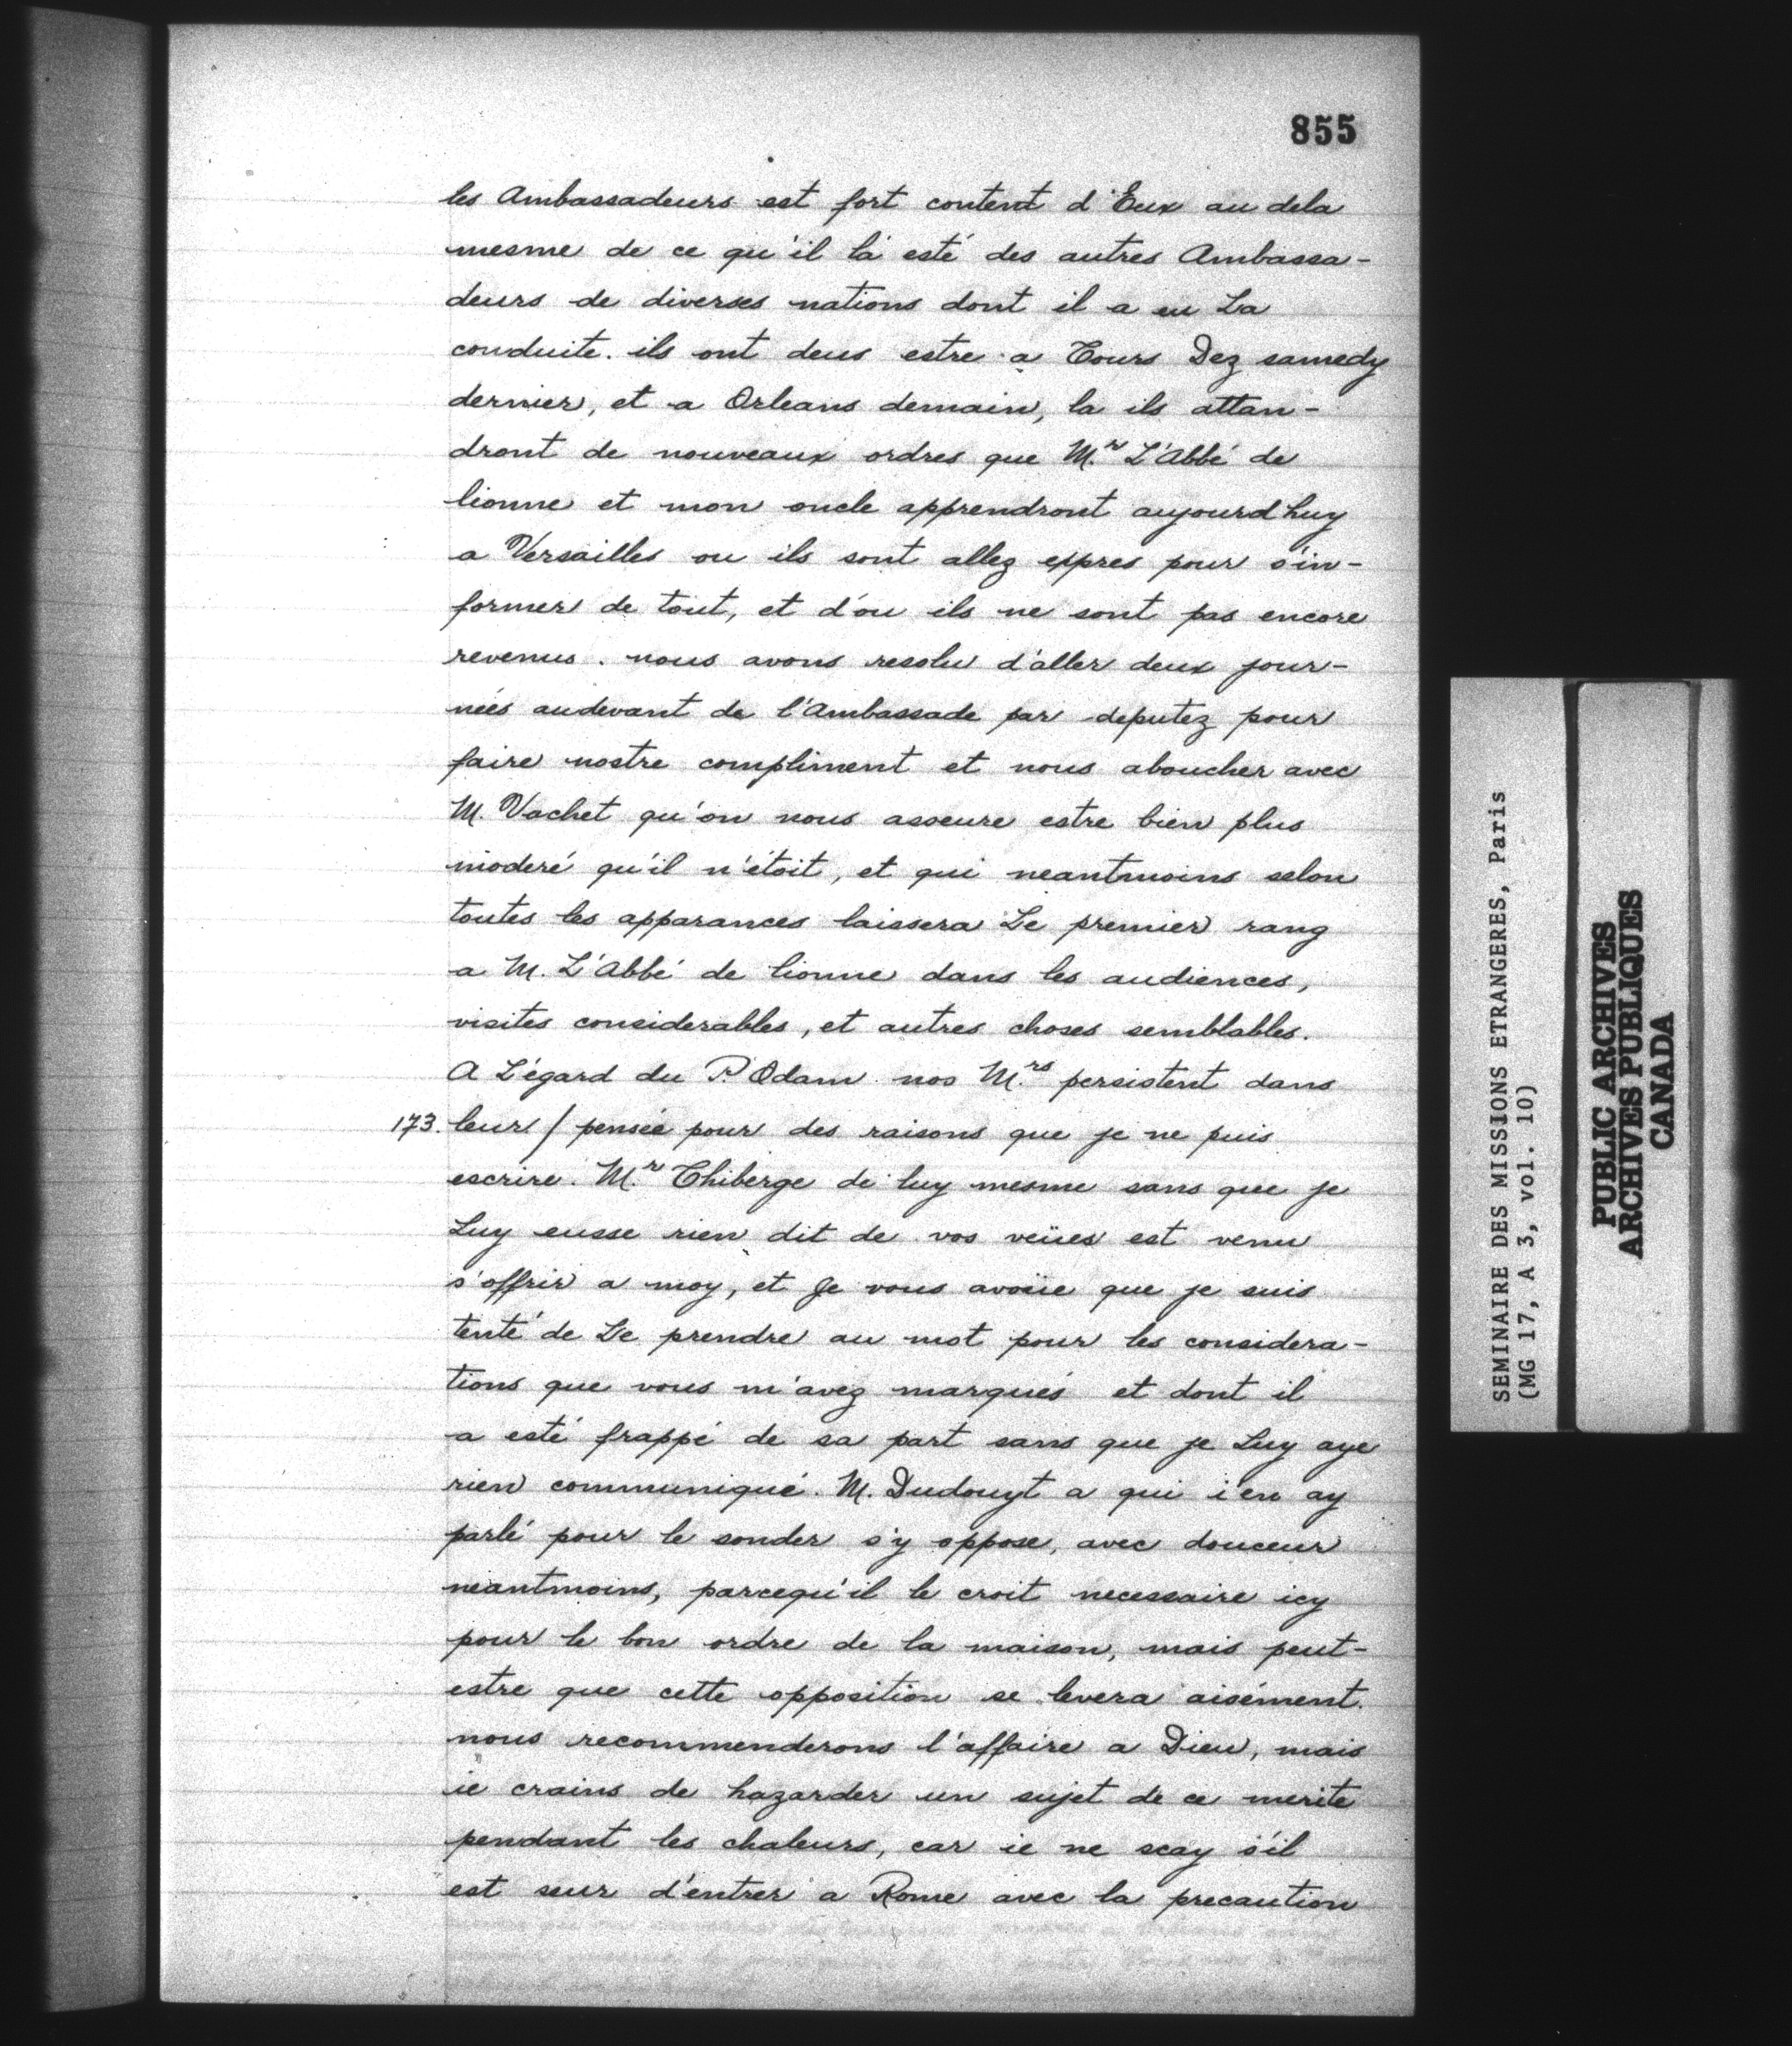 855
les Ambassadeurs est fort content d'Eux au dela
mesme de ce qu'il l'a esté des autres Ambassa-
deurs de diverses nations dont il a eu La
conduite. ils ont deus estre a Tours Dez samedy
dernier, et a Orleans demain, la ils attan-
dront de nouveaux ordres que M.r L'Abbé de
lionne et mon oncle apprendront aujourd'huy
a Versailles ou ils sont allez expres pour s'in-
former de tout, et d'ou ils ne sont pas encore
revenus. nous avons resolu d'aller deux jour-
nées audevant de l'Ambassade par deputez pour
faire nostre compliment et nous aboucher avec
M. Vachet qu'on nous asseure estre bien plus
moderé qu'il n'étoit, et qui neantmoins selon
toutes les apparances laissera Le premier rang
a M. L'Abbé de lionne dans les audiences,
visites considerables, et autres choses semblables.
A L'égard du P. Odam nos M.rs persistent dans
173. leur / pensée pour des raisons que je ne puis
escrire. M.r Thiberge de luy mesme sans que je
Luy eusse rien dit de vos veües est venu
s'offrir a moy, et Je vous avoüe que je suis
tenté de Le prendre au mot pour les considera-
tions que vous m'avez marqués et dont il
a esté frappé de sa part sans que je Luy aye
rien communiqué. M. Dudouyt a qui i'en ay
parlé pour le sonder s'y oppose, avec douceur
neantmoins, parcequ'il le croit necessaire icy
pour le bon ordre de la maison, mais peut-
estre que cette opposition se levera aisément.
nous recommenderons l'affaire a Dieu, mais
ie crains de hazarder un sujet de ce merite
pendant les chaleurs, car ie ne scay s'il
est seur d'entrer a Rome avec la precaution
SEMINAIRE DES MISSIONS ETRANGERES, Paris
(MG 17, A 3, vol. 10)
PUBLIC ARCHIVES
ARCHIVES PUBLIQUES
CANADA